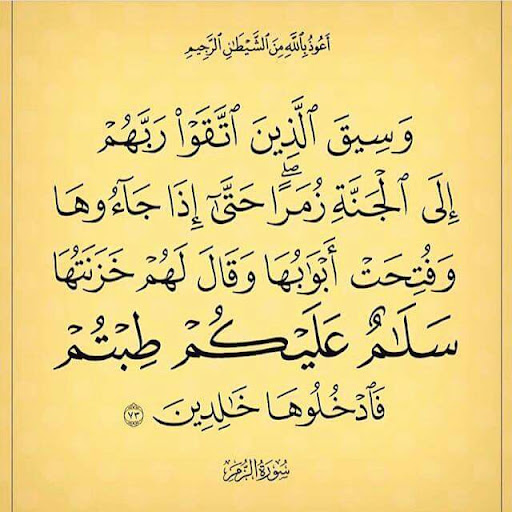 أَعُوذُ بِاللَّهِ مِنَ الشَّيْطَانِ الرَّجِيمِ
وَسِيقَ ٱلَّذِينَ ٱتَّقَوْا۟ رَبَّهُمْ
إِلَى ٱلْجَنَّةِ زُمَرًا ۖ حَتَّىٰٓ إِذَا جَآءُوهَا
وَفُتِحَتْ أَبْوَٰبُهَا وَقَالَ لَهُمْ خَزَنَتُهَا
سَلَـٰمٌ عَلَيْكُمْ طِبْتُمْ
فَٱدْخُلُوهَا خَـٰلِدِينَ ٧٣
سُورَةُ الزُّمَرِ